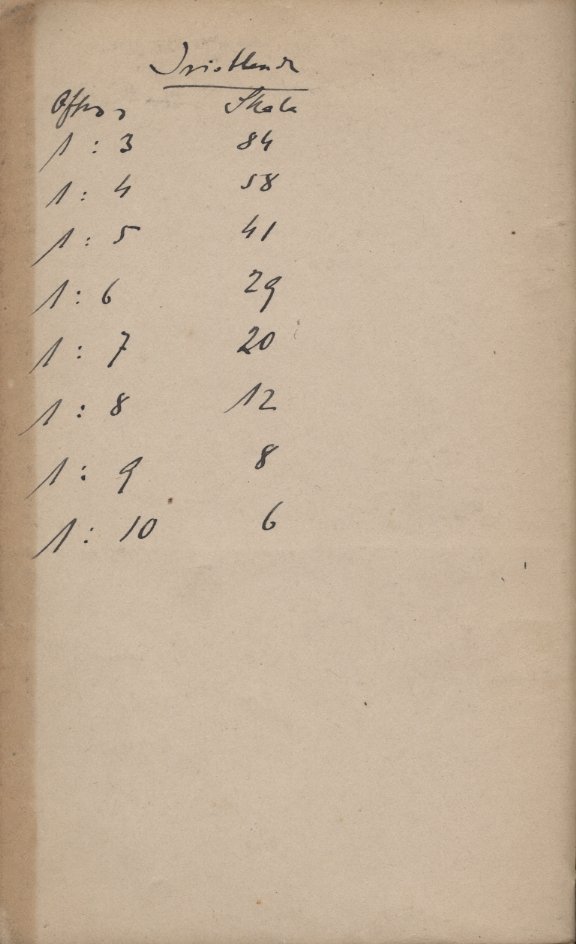 Irisblende
Öffng Skala
1 : 3 84
1 : 4 58
1 : 5 41
1 : 6 29
1 : 7 20
1 : 8 12
1 : 9 8
1 : 10 6